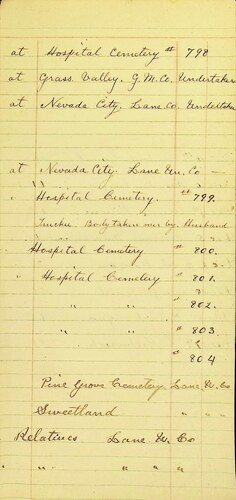 at Hospital Cemetery # 798
at Grass Valley. G. M. Co. Undertaker
at Nevada City. Lane Co. Undertaker
at Nevada City. Lane Un. Co —
" Hospital Cemetery. " 799.
Truckee. Body taken over by Husband
Hospital Cemetery " 800.
" Hospital Cemetery " 801.
" " " 802.
" " " 803
" 804
Pine Grove Cemetery Lane W. Co
Sweetland " " "
Relatives Lane W. Co
" " " " "